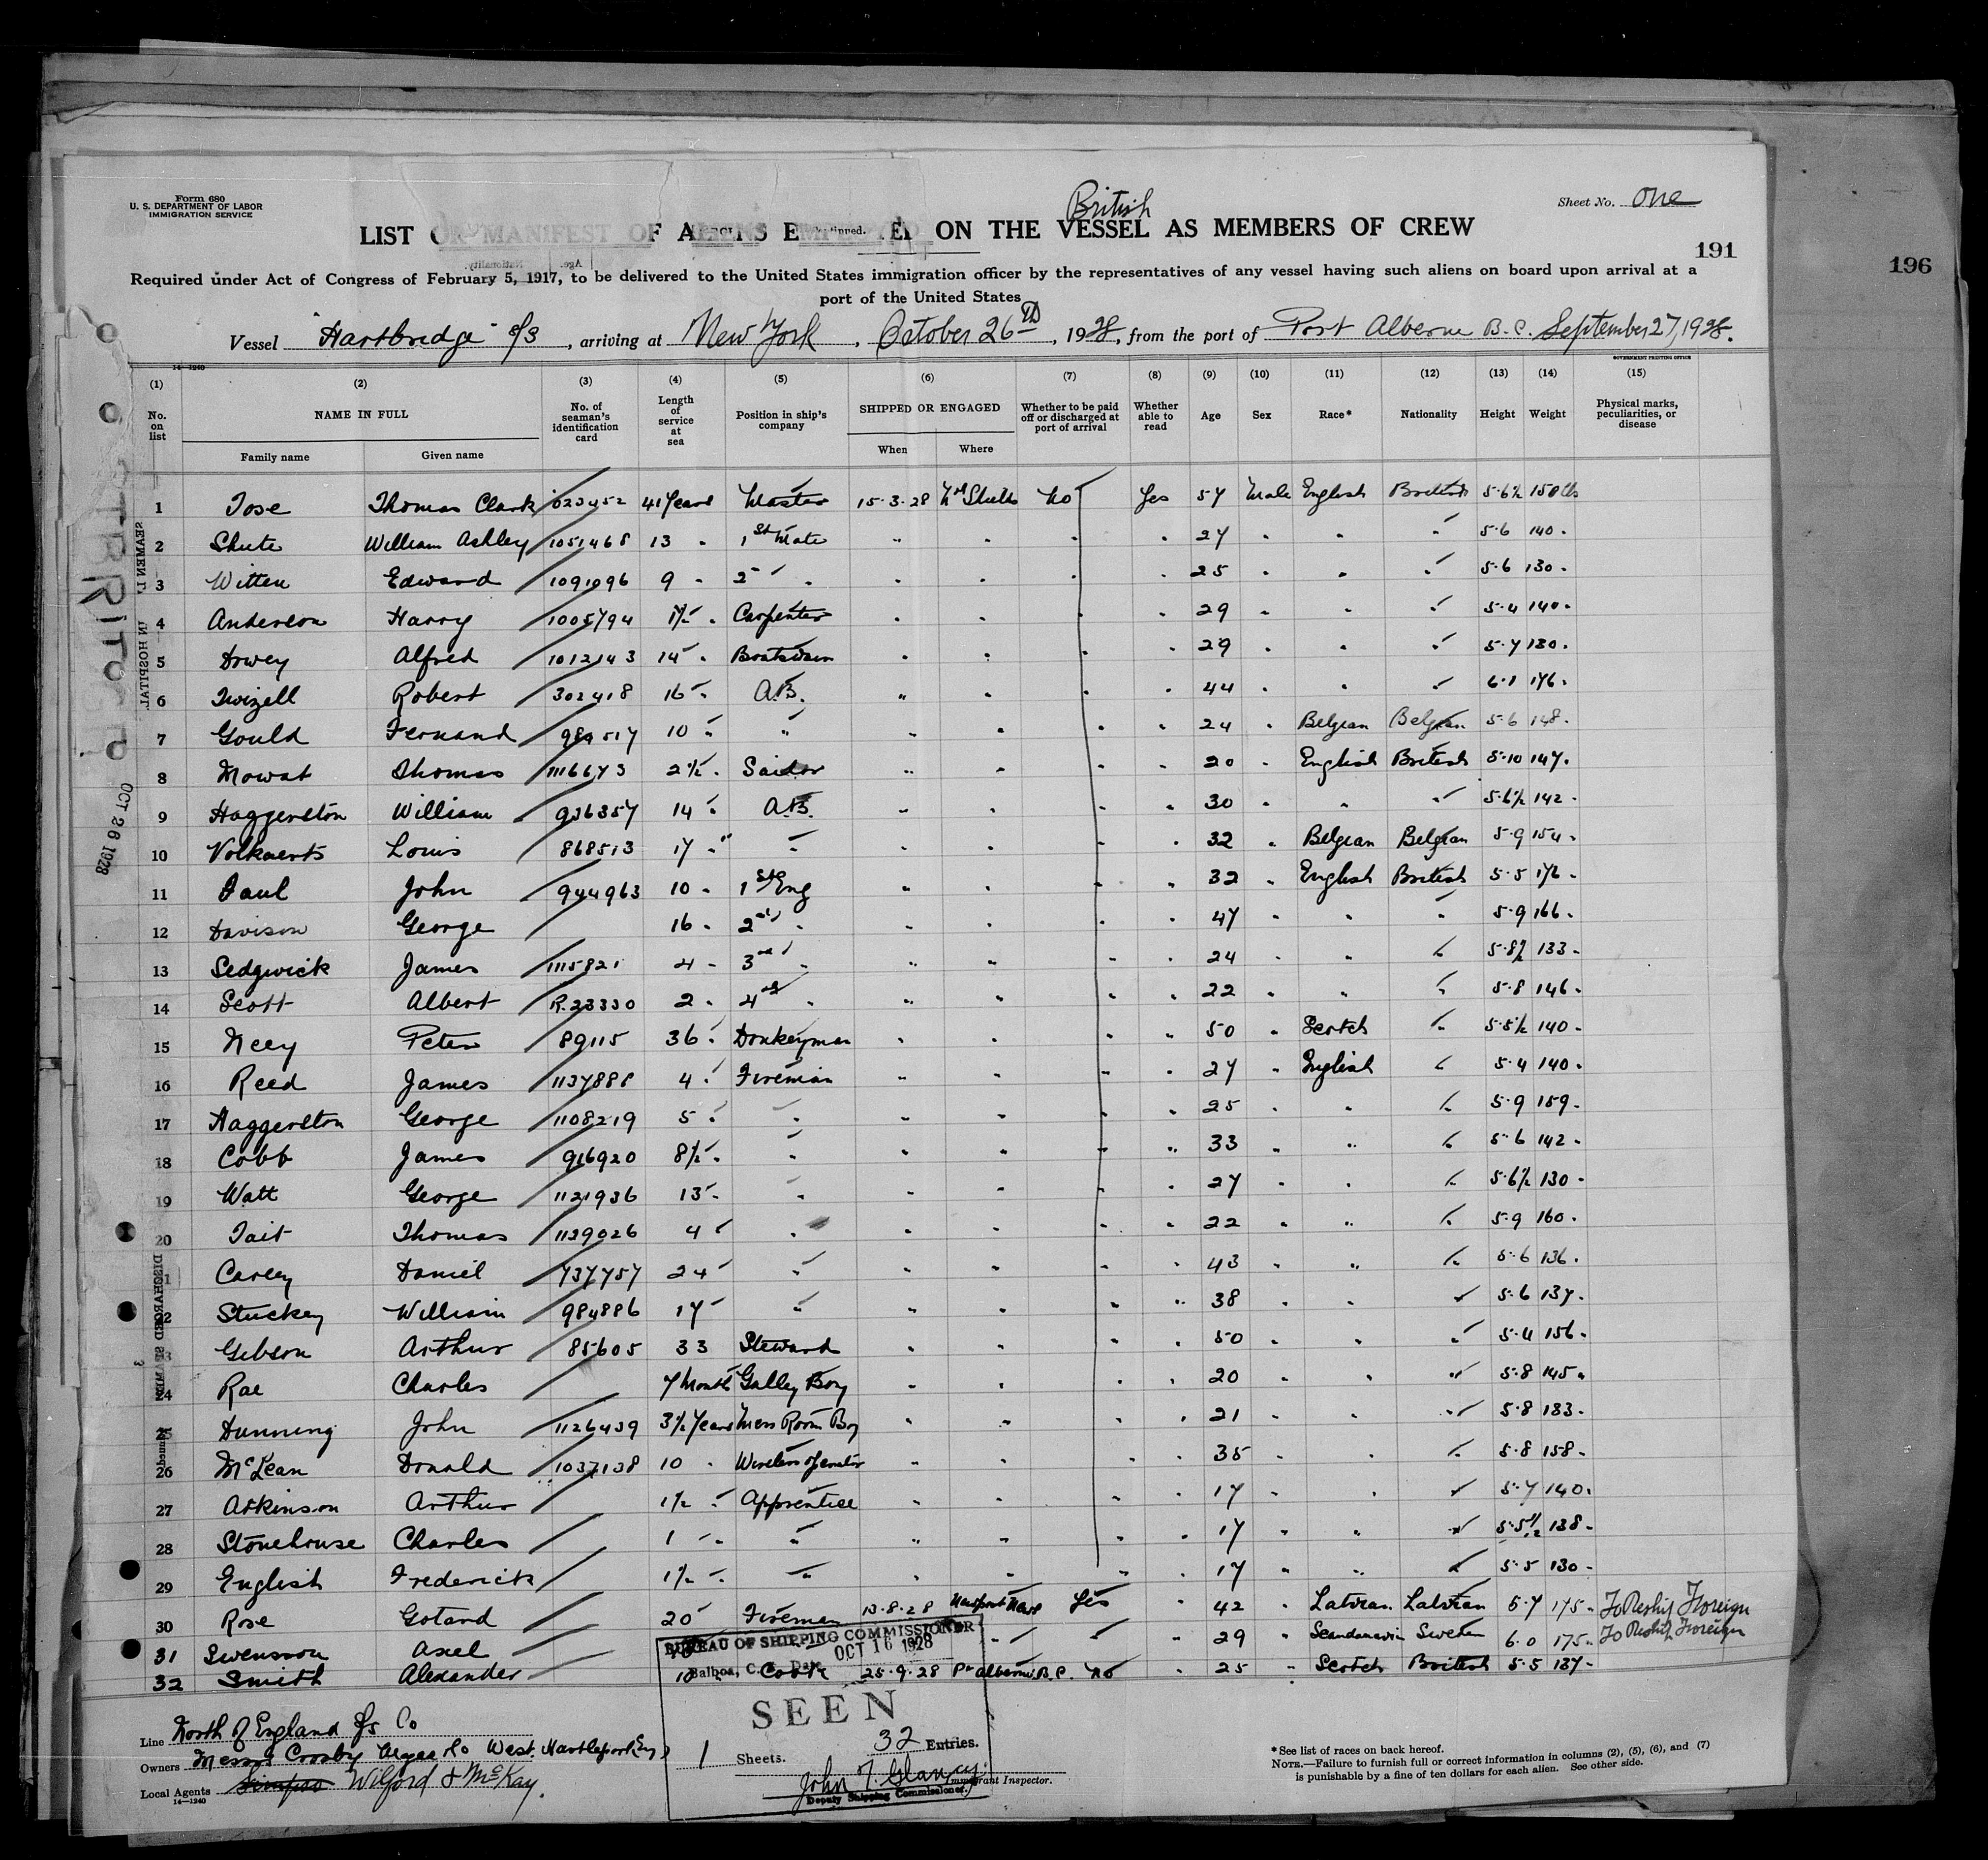 Form 680
U. S. DEPARTMENT OF LABOR
IMMIGRATION SERVICE
Sheet No. One
British
LIST OR MANIFEST OF ALIENS EMPLOYED ON THE VESSEL AS MEMBERS OF CREW
191
196
Required under Act of Congress of February 5, 1917, to be delivered to the United States immigration officer by the representatives of any vessel having such aliens on board upon arrival at a
port of the United States
Vessel "Hartbridge" S/S, arriving at New York, October 26th, 1928, from the port of Port Alberne B.C. September 27, 1928.
14—1240
GOVERNMENT PRINTING OFFICE
(1) (2) (3) (4) (5) (6) (7) (8) (9) (10) (11) (12) (13) (14) (15)
No. on list NAME IN FULL No. of seaman's identification card Length of service at sea Position in ship's company SHIPPED OR ENGAGED Whether to be paid off or discharged at port of arrival Whether able to read Age Sex Race* Nationality Height Weight Physical marks, peculiarities, or disease
Family name Given name When Where
1 Tose Thomas Clark 023452 41 Years Master 15-3-28 No Yes 57 Male English British 5-6½ 150 lbs
2 Shute William Ashley 1051468 13 " 1st Mate " " " " 27 " " " 5-6 140 "
3 Witten Edward 1091096 9 " 2nd " " " " " 25 " " " 5-6 130 "
4 Anderson Harry 1005794 Carpenter " " " " 29 " " " 5-4 140 "
5 Alfred 1012143 14 " Boatswain " " " " 29 " " " 5-7 130 "
6 Twizell Robert 302418 16 " A.B. " " " " 44 " " " 6-1 176 "
7 Gould Fernand 989517 10 " " " " " " 24 " Belgian Belgian 5-6 148 "
8 Mowat Thomas 1116673 2½ " Sailor " " " " 20 " English British 5-10 147 "
9 Haggerston William 936357 14 " A.B. " " " " 30 " " " 5-6½ 142 "
10 Volkaerts Louis 868513 17 " " " " " " 32 " Belgian Belgian 5-9 154 "
11 Paul John 944963 10 " 1st Eng " " " " 32 " English British 5-5 176 "
12 Davison George 16 " 2nd " " " " " 47 " " " 5-9 166 "
13 Sedgwick James 1115821 4 " 3rd " " " " " 24 " " " 5-8½ 133 "
14 Scott Albert R.23330 2 " 4th " " " " " 22 " " " 5-8 146 "
15 Neey Peter 89115 36 " Donkeyman " " " " 50 " Scotch " 5-5½ 140 "
16 Reed James 1137888 4 " Fireman " " " " 27 " English " 5-4 140 "
17 Haggerston George 1108219 5 " " " " " " 25 " " " 5-9 159 "
18 Cobb James 916920 8½ " " " " " " 33 " " " 5-6 142 "
19 Watt George 1121936 13 " " " " " " 27 " " " 5-6½ 130 "
20 Tait Thomas 1129026 4 " " " " " " 22 " " " 5-9 160 "
21 Carley Daniel 737757 24 " " " " " " 43 " " " 5-6 136 "
22 Stuckey William 984886 17 " " " " " 38 " " " 5-6 137 "
23 Gibson Arthur 85605 33 Steward " " " " 50 " " " 5-4 156 "
24 Rae Charles 7 Month Galley Boy " " " " 20 " " " 5-8 145 "
25 Dunning John 1126439 3½ Years Mess Room Boy " " " " 21 " " " 5-8 133 "
26 McLean Donald 1037138 10 " Wireless Operator " " " " 35 " " " 5-8 158 "
27 Atkinson Arthur 1½ " Apprentice " " " " 17 " " " 5-7 140 "
28 Stonehouse Charles 1 " " " " " " 17 " " " 5-5½ 138 "
29 English Frederick 1½ " " " " " " 17 " " " 5-5 130 "
30 Rose Gotard 20 Fireman 13-8-28 Newport News Yes " 42 " Latvian Latvian 5-7 175 " To Reship Foreign
31 Swensson Axel " " " 29 " Scandanavia Sweden 6-0 175 " To Reship Foreign
32 Smith Alexander 10 Cook 25-9-28 Pt Alberni B.C. No " 25 " Scotch British 5-5 137 "
OCT 26 1928
BUREAU OF SHIPPING COMMISSIONER
Balboa, C. Z., Date OCT 16 1928
SEEN
1 Sheets. 32 Entries.
John J. Glancy
Immigrant Inspector.
Deputy Shipping Commissioner.
Line North of England S/s Co
Owners Messrs Crosby Magee & Co West Hartlepool Eng
Local Agents Wilford & McKay.
14—1240
*See list of races on back hereof.
NOTE.—Failure to furnish full or correct information in columns (2), (5), (6), and (7)
is punishable by a fine of ten dollars for each alien. See other side.